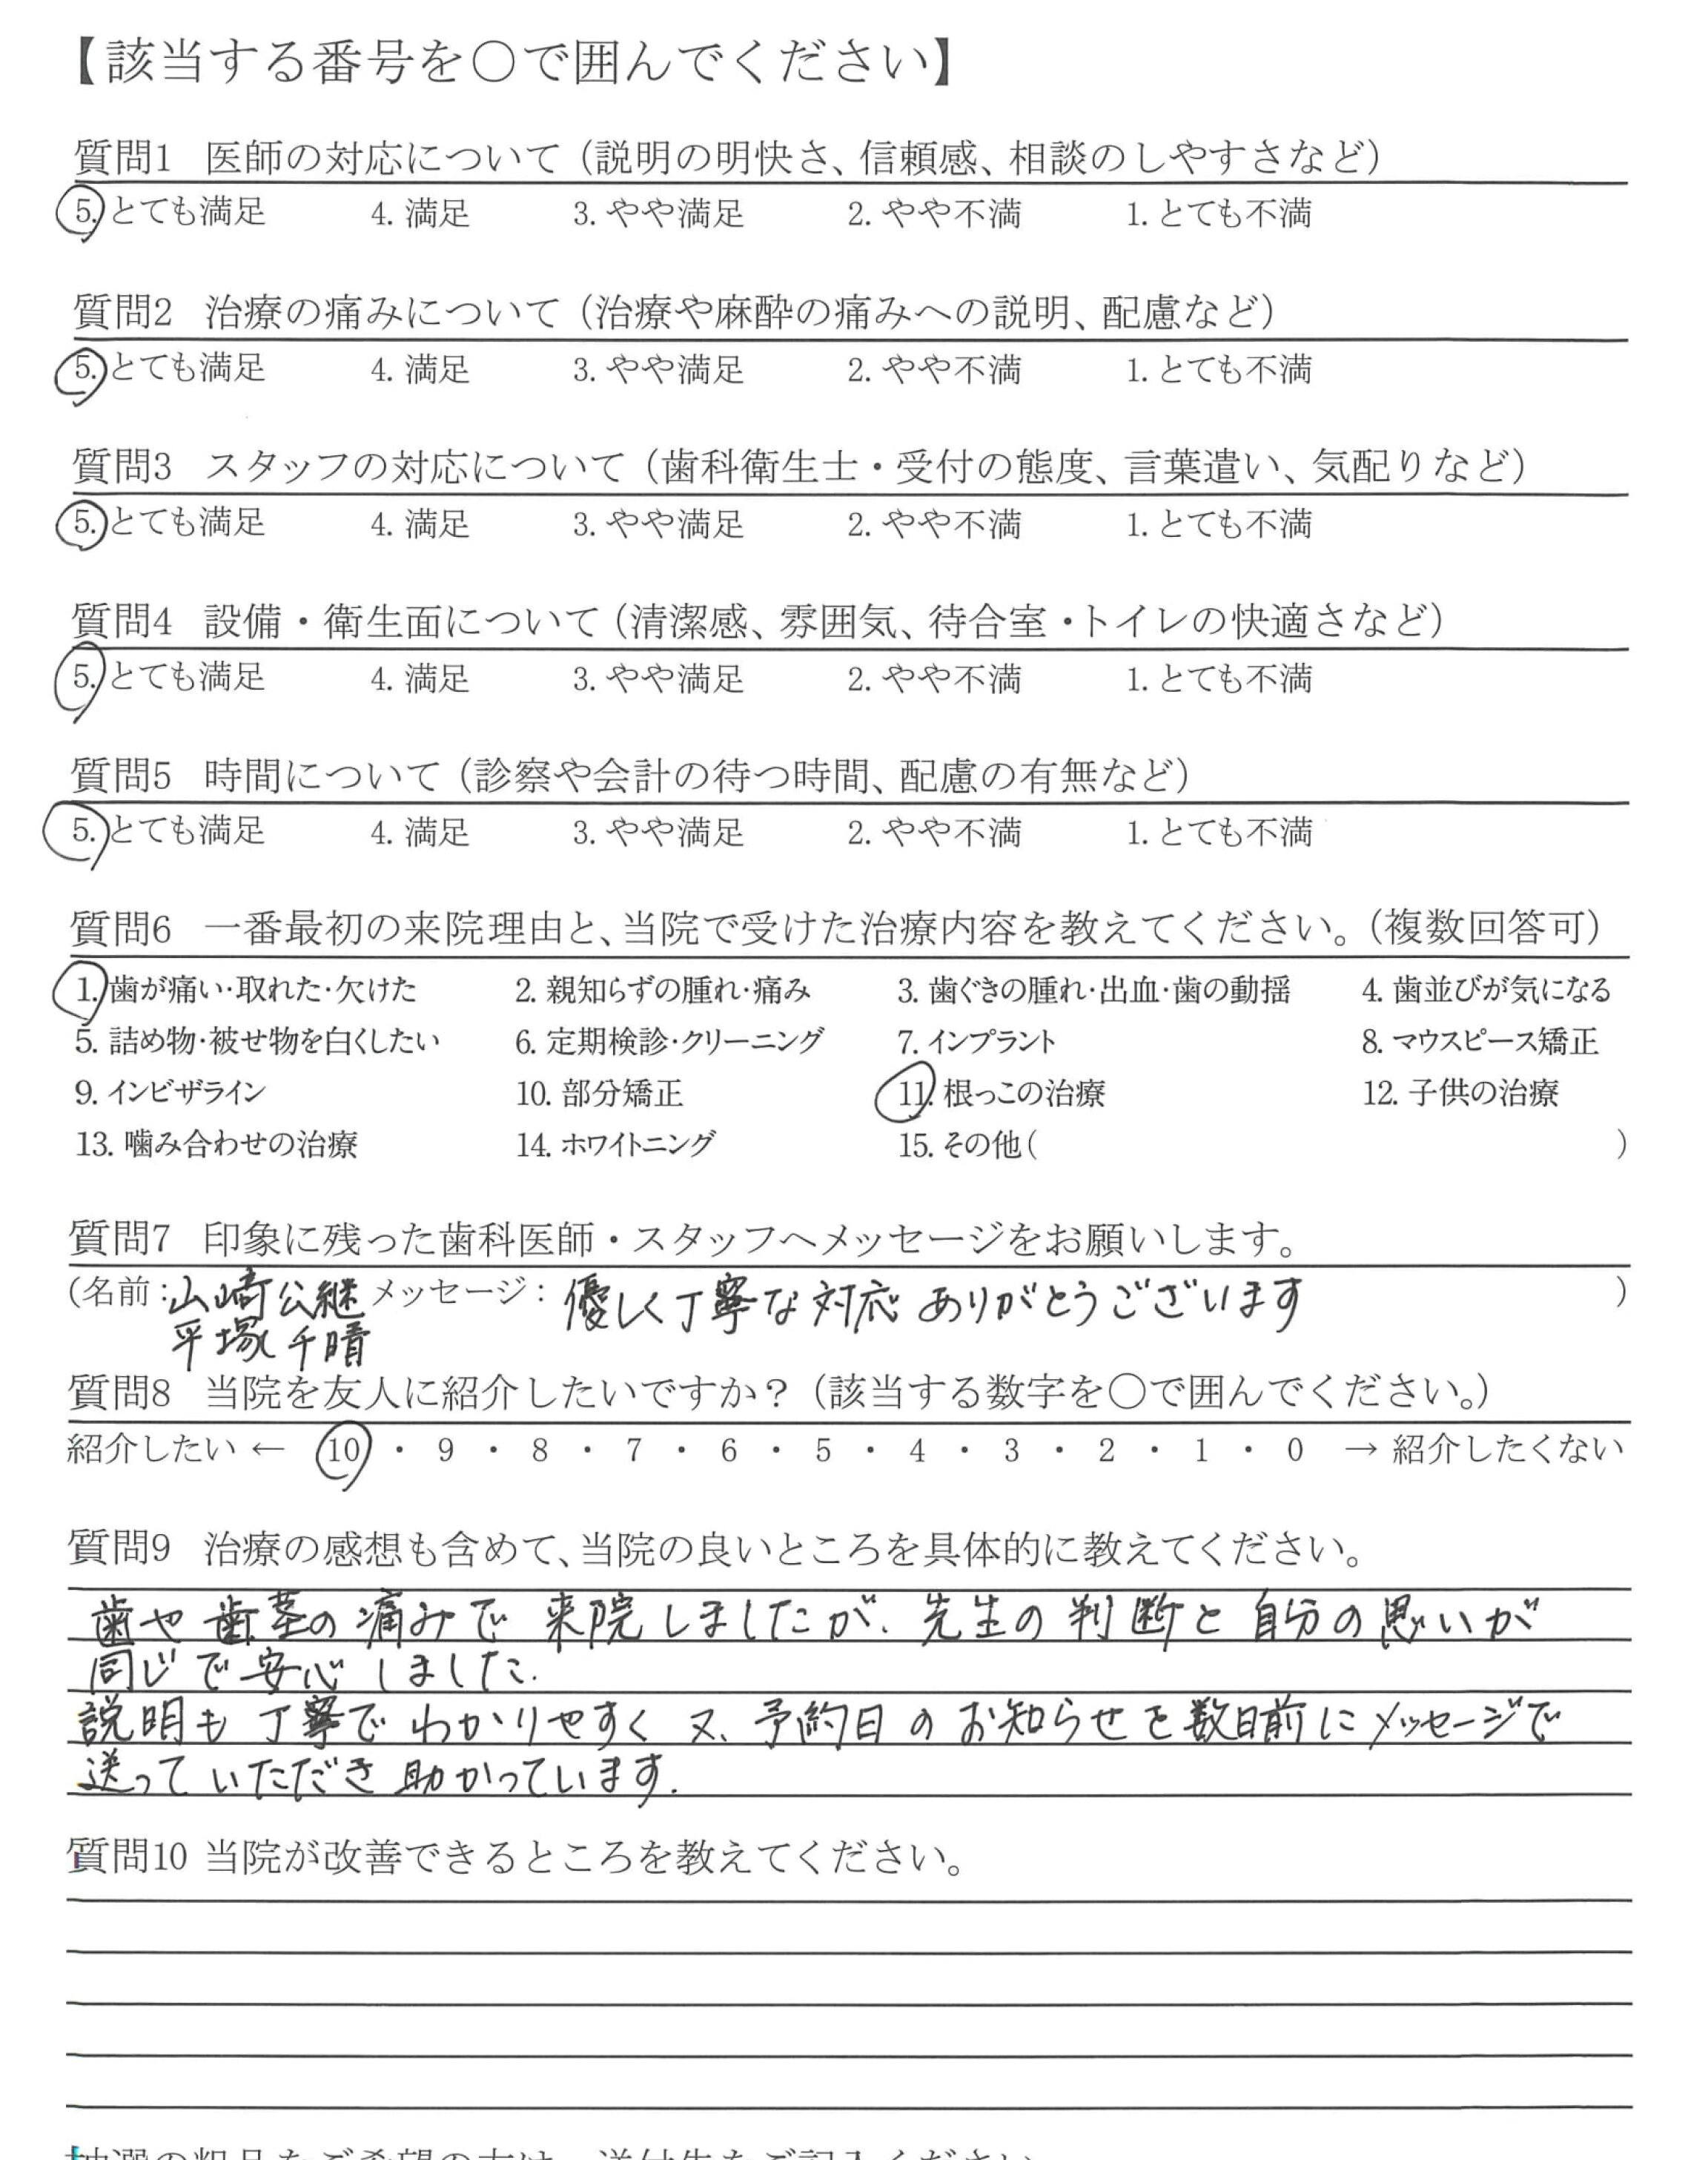 【該当する番号を○で囲んでください】
質問1 医師の対応について（説明の明快さ、信頼感、相談のしやすさなど）
5. とても満足 4. 満足 3. やや満足 2. やや不満 1. とても不満
質問2 治療の痛みについて（治療や麻酔の痛みへの説明、配慮など）
5. とても満足 4. 満足 3. やや満足 2. やや不満 1. とても不満
質問3 スタッフの対応について（歯科衛生士・受付の態度、言葉遣い、気配りなど）
5. とても満足 4. 満足 3. やや満足 2. やや不満 1. とても不満
質問4 設備・衛生面について（清潔感、雰囲気、待合室・トイレの快適さなど）
5. とても満足 4. 満足 3. やや満足 2. やや不満 1. とても不満
質問5 時間について（診察や会計の待つ時間、配慮の有無など）
5. とても満足 4. 満足 3. やや満足 2. やや不満 1. とても不満
質問6 一番最初の来院理由と、当院で受けた治療内容を教えてください。（複数回答可）
1. 歯が痛い・取れた・欠けた 2. 親知らずの腫れ・痛み 3. 歯ぐきの腫れ・出血・歯の動揺 4. 歯並びが気になる
5. 詰め物・被せ物を白くしたい 6. 定期検診・クリーニング 7. インプラント 8. マウスピース矯正
9. インビザライン 10. 部分矯正 11. 根っこの治療 12. 子供の治療
13. 噛み合わせの治療 14. ホワイトニング 15. その他（ ）
質問7 印象に残った歯科医師・スタッフへメッセージをお願いします。
（名前：山崎公継 メッセージ：優しく丁寧な対応ありがとうございます ）
平塚千晴
質問8 当院を友人に紹介したいですか？（該当する数字を○で囲んでください。）
紹介したい ← 10 ・ 9 ・ 8 ・ 7 ・ 6 ・ 5 ・ 4 ・ 3 ・ 2 ・ 1 ・ 0 → 紹介したくない
質問9 治療の感想も含めて、当院の良いところを具体的に教えてください。
歯や歯茎の痛みで来院しましたが、先生の判断と自分の思いが
同じで安心しました.
説明も丁寧でわかりやすく又、予約日のお知らせを数日前にメッセージで
送っていただき助かっています.
質問10 当院が改善できるところを教えてください。
抽選の粗品をご希望の方は、送付先をご記入ください